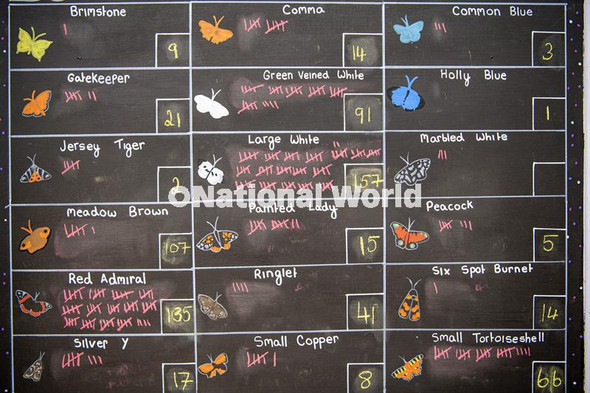 Brimstone Comma Common Blue
9 14 3
Gatekeeper Green Veined White Holly Blue
21 91 1
Jersey Tiger Large White Marbled White
2 157
©National World
Meadow Brown Painted Lady Peacock
107 15 5
Red Admiral Ringlet Six Spot Burnet
135 41 14
Silver Y Small Copper Small Tortoiseshell
17 8 66